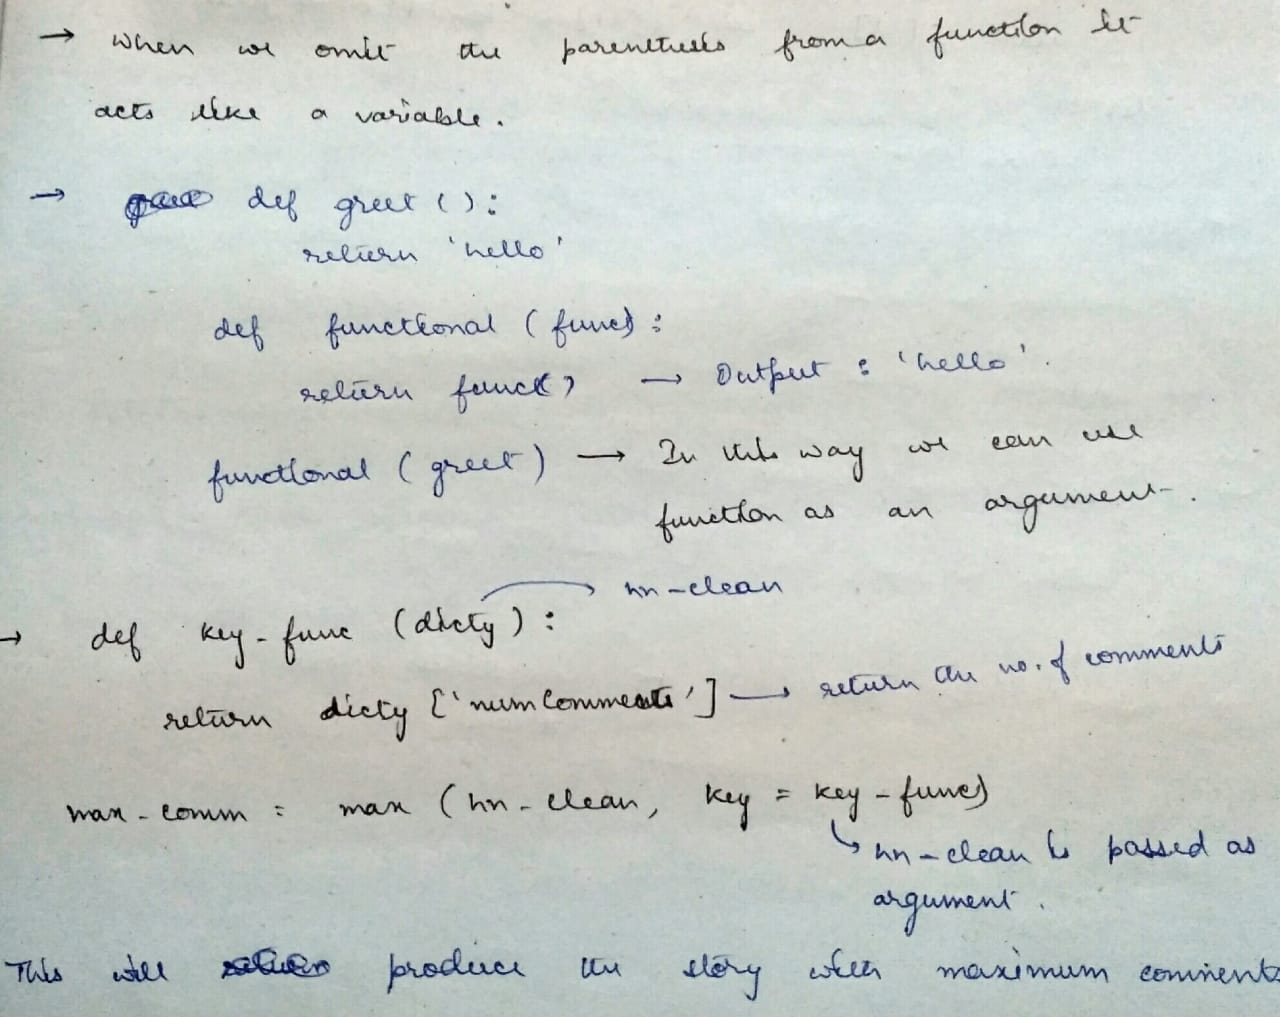 → when we omit the parenthesis from a function it
acts like a variable.
→ def greet ():
return 'hello'
def functional (func):
return func() → Output : 'hello'.
functional (greet) → In this way we can use
function as an argument.
→ hn-clean
→ def key-func (dicty) :
return dicty ['numComments'] → return the no. of comments
max-comm = max (hn-clean, key = key-func)
↳ hn-clean is passed as
argument.
This will produce the story with maximum comments